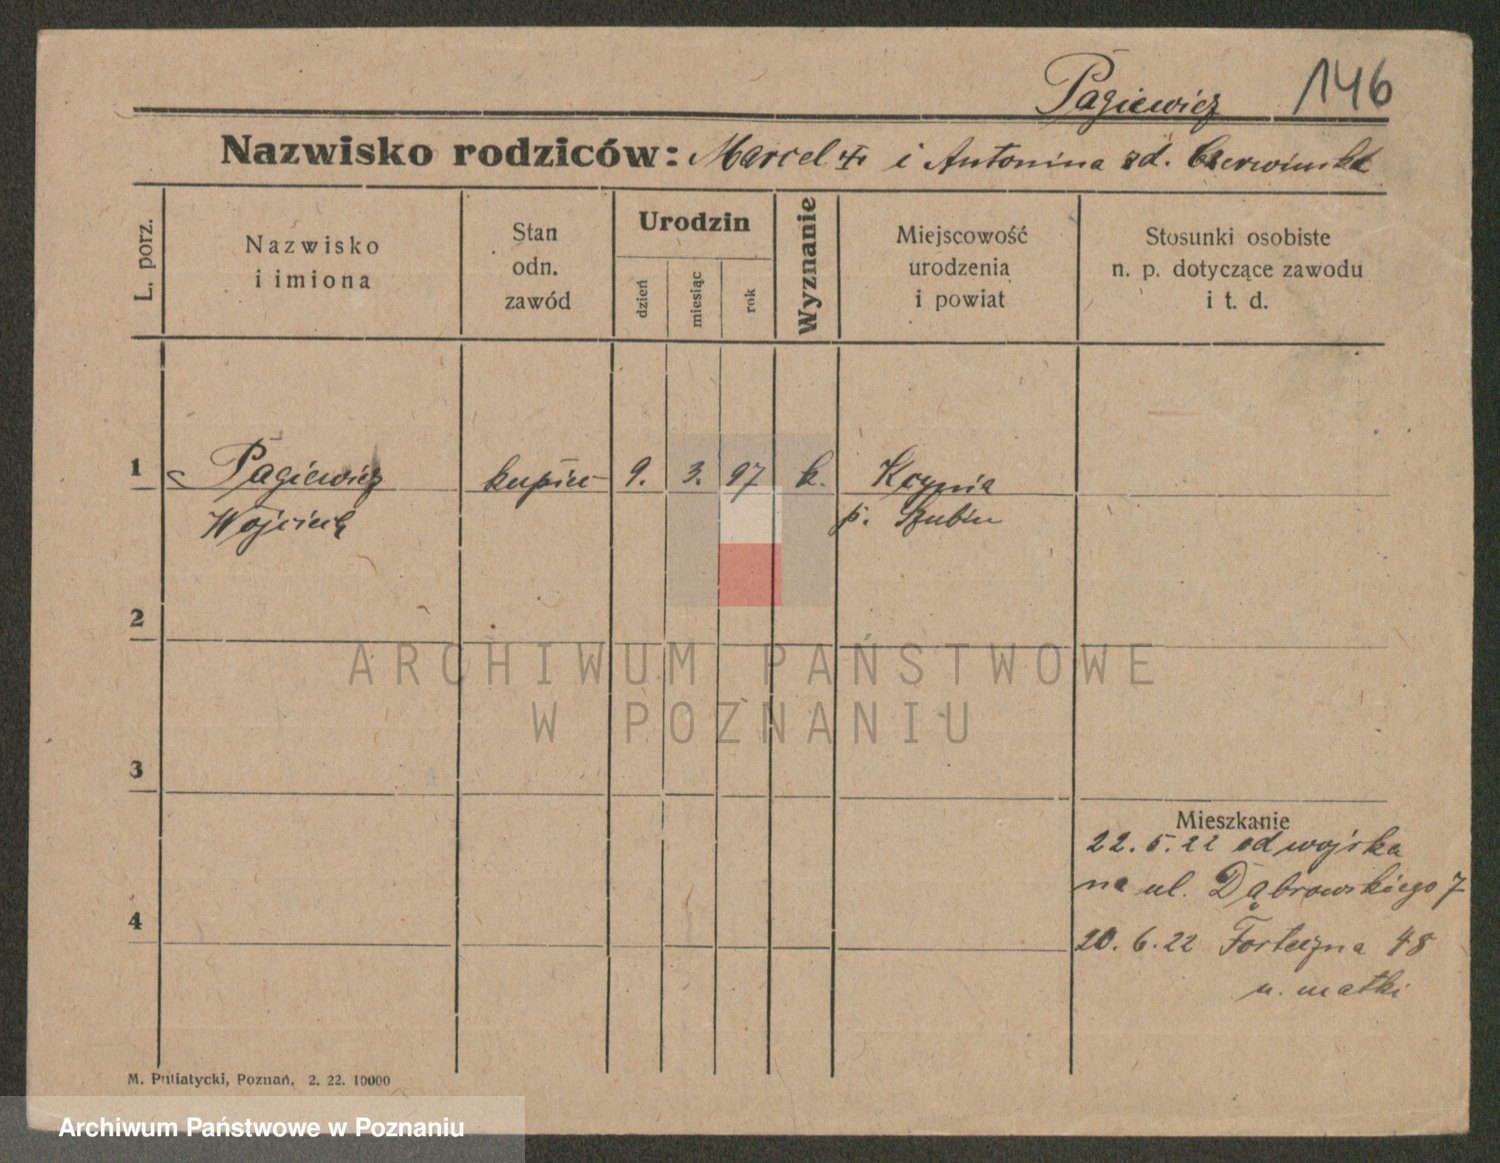 Pagiewicz 146
Nazwisko rodziców: Marcel i Antonina zd. Czerwińska
L. porz.
Nazwisko
i imiona
Stan
odn.
zawód
Urodzin
dzień
miesiąc
rok
Wyznanie
Miejscowość
urodzenia
i powiat
Stosunki osobiste
n. p. dotyczące zawodu
i t. d.
1 Pagiewicz kupiec 9. 3. 97 k. Kcynia
Wojciech p. Szubin
2
ARCHIWUM PAŃSTWOWE
W POZNANIU
3
Mieszkanie
22.5.22 od wojska
na ul. Dąbrowskiego 7
4
20.6.22 Forteczna 48
u. matki
M. Putiatycki, Poznań, 2. 22. 10000
Archiwum Państwowe w Poznaniu